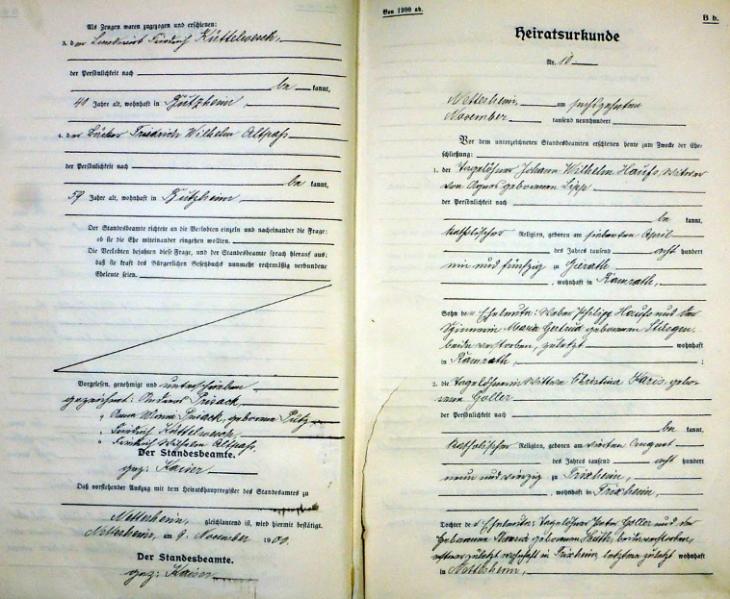 Als Zeugen waren zugezogen und erschienen:
3. der Friedrich Küttelwesch,
der Persönlichkeit nach
be kannt,
40 Jahre alt, wohnhaft in
4. der Friedrich Wilhelm Altpaß
der Persönlichkeit nach
be kannt,
59 Jahre alt, wohnhaft in
Der Standesbeamte richtete an die Verlobten einzeln und nacheinander die Frage:
ob sie die Ehe miteinander eingehen wollten.
Die Verlobten bejahten diese Frage, und der Standesbeamte sprach hierauf aus:
daß sie kraft des Bürgerlichen Gesetzbuchs nunmehr rechtmäßig verbundene
Eheleute seien.
Vorgelesen, genehmigt und unterschrieben
gezeichnet:
" Anna geborene Pütz
" Friedrich Küttelwesch,
" Friedrich Wilhelm Altpaß.
Der Standesbeamte.
gez: Kaiser
Daß vorstehender Auszug mit dem Heiratshauptregister des Standesamtes zu
Nettesheim, gleichlautend ist, wird hiermit bestätigt.
Nettesheim, am 9. November 1900.
Der Standesbeamte.
gez: Kaiser
Von 1900 ab.
B b.
Heiratsurkunde
Nr. 10
Nettesheim, am
November tausend neunhundert
Vor dem unterzeichneten Standesbeamten erschienen heute zum Zwecke der Ehe-
schließung:
1. der Tagelöhner Johann Wilhelm Witwer
von Agnes geborenen Lipp
der Persönlichkeit nach
be kannt,
katholischer Religion, geboren am siebenten April
des Jahres tausend acht hundert
ein und fünfzig zu
, wohnhaft in Ramrath,
Sohn der Eheleute: Weber Philipp und der
Maria Gertrud geborenen
beide verstorben, zuletzt wohnhaft
in Ramrath, ;
2. die Tagelöhnerin Wittwe Christina gebo-
rene Goller
der Persönlichkeit nach
be kannt,
katholischer Religion, geboren am vierten August
des Jahres tausend acht hundert
neun und vierzig zu Frixheim,
, wohnhaft in Frixheim,
Tochter der Eheleute: Tagelöhner Peter Goller und der
geborenen beide verstorben,
zuletzt wohnhaft in Frixheim, letztere zuletzt wohnhaft
in Nettesheim,